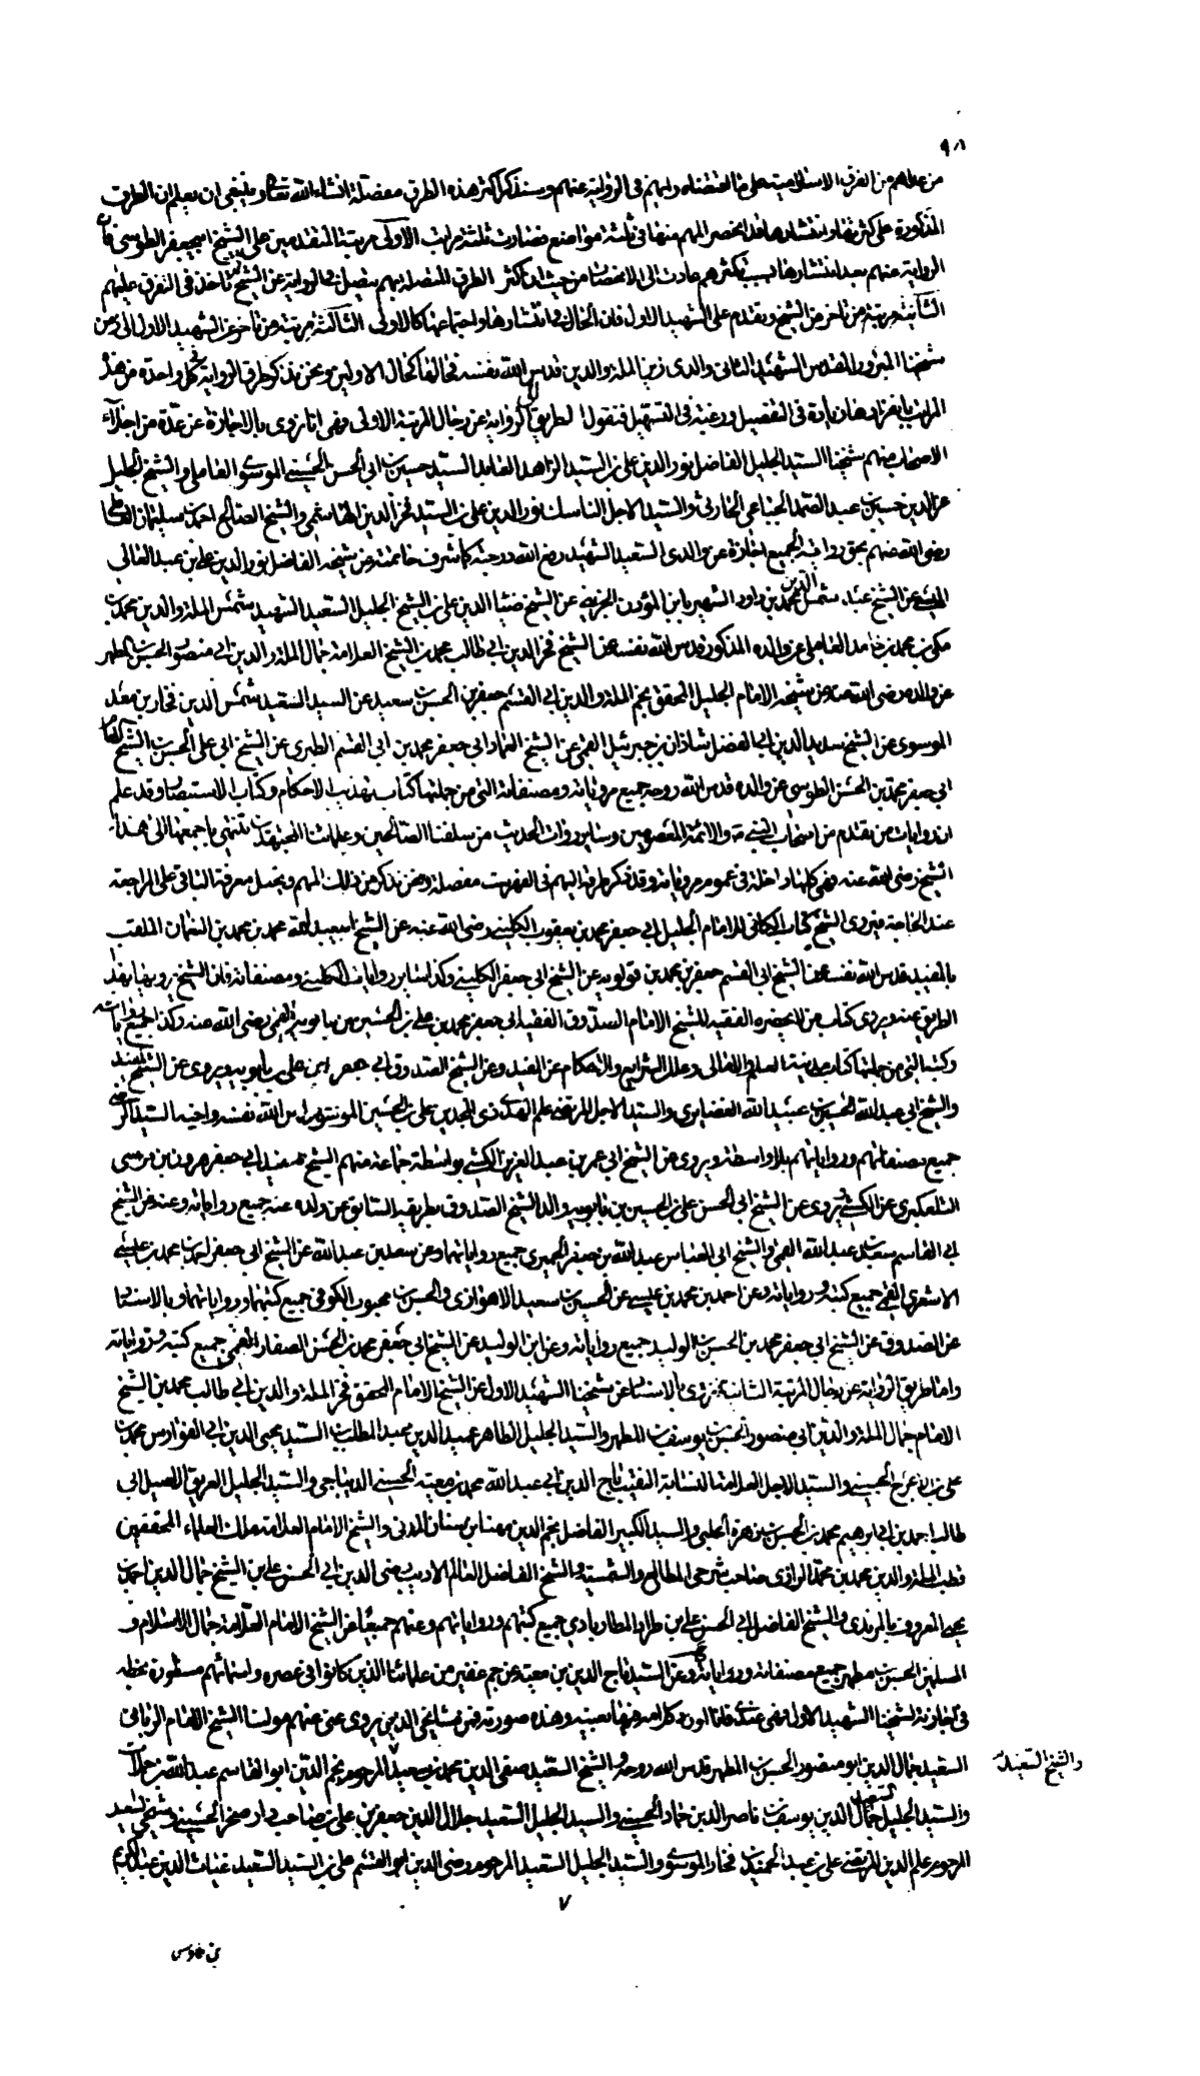 من عداهم من الفرق الاسلامية على ما اقتضاه رايهم في الرواية عنهم وسنذكر اكثر هذه الطرق مفصلة انشاء الله تعالى وينبغي ان يعلم ان الطرق
المذكورة على كثرتها وانتشارها قد انحصر المهم منها في ثلثة مواضع فصارت ثلثة مراتب الاولى مرتبة المتقدمين على الشيخ ابيجعفر الطوسي فان
الرواية عنهم بعد انتشارها بسبب تكثرهم عادت الى الانضمام من حيث ان اكثر الطرق المتصلة بهم يتصل في الرواية عن الشيخ ثم تاخذ في التفرق عليهم
الثانية مرتبة من تاخر عن الشيخ وتقدم على الشهيد الاول فان الحال في انتشارها واجتماعها كالاولى الثالثة مرتبة من تاخر عن الشهيد الاول الى زمن
شيخنا المبرور المقدس الشهيد الثاني والدي زين الملة والدين قدس الله نفسه فحالها كحال الاولين ونحن نذكر طرق الرواية في كل واحدة من هذه
المراتب بانفرادها زيادة في التفصيل ورغبة في التسهيل فنقول اما طريق الرواية عن رجال المرتبة الاولى فهي انا نروي بالاجازة عن عدة من اجلاء
الاصحاب منهم شيخنا السيد الجليل الفاضل نور الدين علي بن السيد الزاهد العابد السيد حسين بن ابي الحسن الحسيني الموسوي العاملي والشيخ الجليل
عز الدين حسين بن عبد الصمد الجباعي الحارثي والسيد الاجل الناسك نور الدين علي بن السيد فخر الدين الهاشمي والشيخ الصالح احمد بن سليمان العاملي
رضي الله عنهم بحق رواية الجميع اجازة عن والدي السعيد الشهيد رفع الله درجته كما شرف خاتمته عن شيخه الفاضل نور الدين علي بن عبد العالي
الميسي عن الشيخ شمس الدين محمد بن داود الشهير بابن المؤذن الجزيني عن الشيخ ضياء الدين علي بن الشيخ الجليل السعيد الشهيد شمس الملة والدين محمد بن
مكي بن محمد بن حامد العاملي عن والده المذكور قدس الله نفسه عن الشيخ فخر الدين ابي طالب محمد بن الشيخ العلامة جمال الملة والدين ابي منصور الحسن بن المطهر
عن والده رضي الله عنه عن شيخه الامام الجليل المحقق نجم الملة والدين ابي القسم جعفر بن الحسن بن سعيد عن السيد السعيد شمس الدين فخار بن معد
الموسوي عن الشيخ سديد الدين ابي الفضل شاذان بن جبرئيل القمي عن الشيخ العماد ابي جعفر محمد بن ابي القسم الطبري عن الشيخ ابي علي الحسن بن الشيخ
ابي جعفر محمد بن الحسن الطوسي عن والده قدس الله روحه جميع مروياته ومصنفاته التي من جملتها كتاب تهذيب الاحكام وكتاب الاستبصار وقد علم
ان روايات من تقدم من اصحاب النبي والائمة المعصومين وساير روات الحديث من سلفنا الصالحين وعلمائنا المجتهدين تنتهي باجمعها الى هذا
الشيخ رضي الله عنه فهي كلها داخلة في عموم مروياته وقد ذكر طرقه اليهم في الفهرست مفصلة ونحن نذكر من ذلك المهم ونحيل معرفة الباقي على المراجعة
عند الحاجة فيروي الشيخ كتاب الكافي للامام الجليل ابي جعفر محمد بن يعقوب الكليني رضي الله عنه عن الشيخ ابيعبد الله محمد بن محمد بن النعمان الملقب
بالمفيد قدس الله نفسه عن الشيخ ابي القسم جعفر بن محمد بن قولويه عن الشيخ ابي جعفر الكليني وكذا ساير روايات الكليني ومصنفاته فان الشيخ يرويها بهذا
الطريق عنه ويروي كتاب من لا يحضره الفقيه للشيخ الامام الصدوق الفقيه ابي جعفر محمد بن علي بن الحسين بن بابويه القمي رضي الله عنه وكذا جميع رواياته
وكتبه التي من جملتها كتاب مدينة العلم والامالي وعلل الشرايع والاحكام عن المفيد وعن الشيخ الصدوق ابي جعفر ابن علي بن بابويه ويروي عن الشيخ المفيد
والشيخ ابي عبد الله الحسين بن عبيد الله الغضايري والسيد الاجل المرتضى علم الهدى ذي المجدين علي بن الحسين الموسوي قدس الله نفسه واخيه السيد الرضي
جميع مصنفاتهم ورواياتهم بلا واسطة ويروي عن الشيخ ابي عمر بن عبد العزيز الكشي بواسطة جماعة منهم الشيخ المفيد ابي جعفر هرون بن موسى
التلعكبري عن الكشي ويروي عن الشيخ ابي الحسن علي بن الحسين بن بابويه والد الشيخ الصدوق بطريقه السابق عن ولده عنه جميع رواياته وعنه عن الشيخ
ابي القاسم سعد بن عبد الله القمي والشيخ ابي العباس عبد الله بن جعفر الحميري جميع رواياتهما وعن سعد بن عبد الله عن الشيخ ابي جعفر احمد بن محمد بن عيسى
الاشعري القمي جميع كتبه ورواياته وعن احمد بن محمد بن عيسى عن الحسين بن سعيد الاهوازي والحسن بن محبوب الكوفي جميع كتبهما ورواياتهما وبالاسناد
عن الصدوق عن الشيخ ابي جعفر محمد بن الحسن بن الوليد جميع رواياته وعن ابن الوليد عن الشيخ ابي جعفر محمد بن الحسن الصفار القمي جميع كتبه ورواياته
واما طريق الرواية عن رجال المرتبة الثانية فنروي بالاسناد عن شيخنا الشهيد الاول عن الشيخ الامام المحقق فخر الملة والدين ابي طالب محمد بن الشيخ
الامام جمال الملة والدين ابي منصور الحسن بن يوسف بن المطهر والسيد الجليل الطاهر عميد الدين عبد المطلب بن السيد مجد الدين ابي الفوارس محمد بن
علي بن الاعرج الحسيني والسيد الاجل العلامة النسابة النقيب تاج الدين ابي عبد الله محمد بن معية الحسيني الديباجي والسيد الجليل العريق الاصيل ابي
طالب احمد بن ابي ابرهيم محمد بن الحسن بن زهرة الحلبي والسيد الكبير الفاضل نجم الدين مهنا بن سنان المدني والشيخ الامام العلامة ملك العلماء المحققين
قطب الملة والدين محمد بن محمد الرازي صاحب شرحي المطالع والشمسية والشيخ الفاضل العالم الاديب رضي الدين ابي الحسن علي بن الشيخ جمال الدين احمد بن
يحيى المعروف بالمزيدي والشيخ الفاضل ابي الحسن علي بن طراد المطاربادي جميع كتبهم ورواياتهم وعنهم جميعا عن الشيخ الامام العلامة جمال الاسلام و
المسلمين الحسن بن مطهر جميع مصنفاته ومروياته وعن السيد تاج الدين بن معية عن جم غفير من علمائنا الذين كانوا في عصره واسمائهم مسطورة بخطه
في اجازته لشيخنا الشهيد الاول وهي عندي فانا اورد كلامه فيها بعينه وهذه صورته فمن مشايخي الذين يروي عني عنهم مولينا الشيخ الامام الرباني
السعيد جمال الدين ابو منصور الحسن بن المطهر قدس الله روحه والشيخ السعيد صفي الدين محمد بن سعيد المرحوم نجم الدين ابو القاسم عبد الله بن حملات
والشيخ السعيد
والسيد الجليل السعيد جمال الدين يوسف بن ناصر الدين حماد الحسيني والسيد الجليل السعيد جلال الدين جعفر بن علي بن صاحب دار صخر الحسيني وشيخي السعيد
المرحوم علم الدين المرتضى علي بن عبد الحميد بن فخار الموسوي والسيد الجليل السعيد المرحوم رضي الدين ابو القسم علي بن السيد السعيد غياث الدين عبد الكريم
٧
بن طاوس